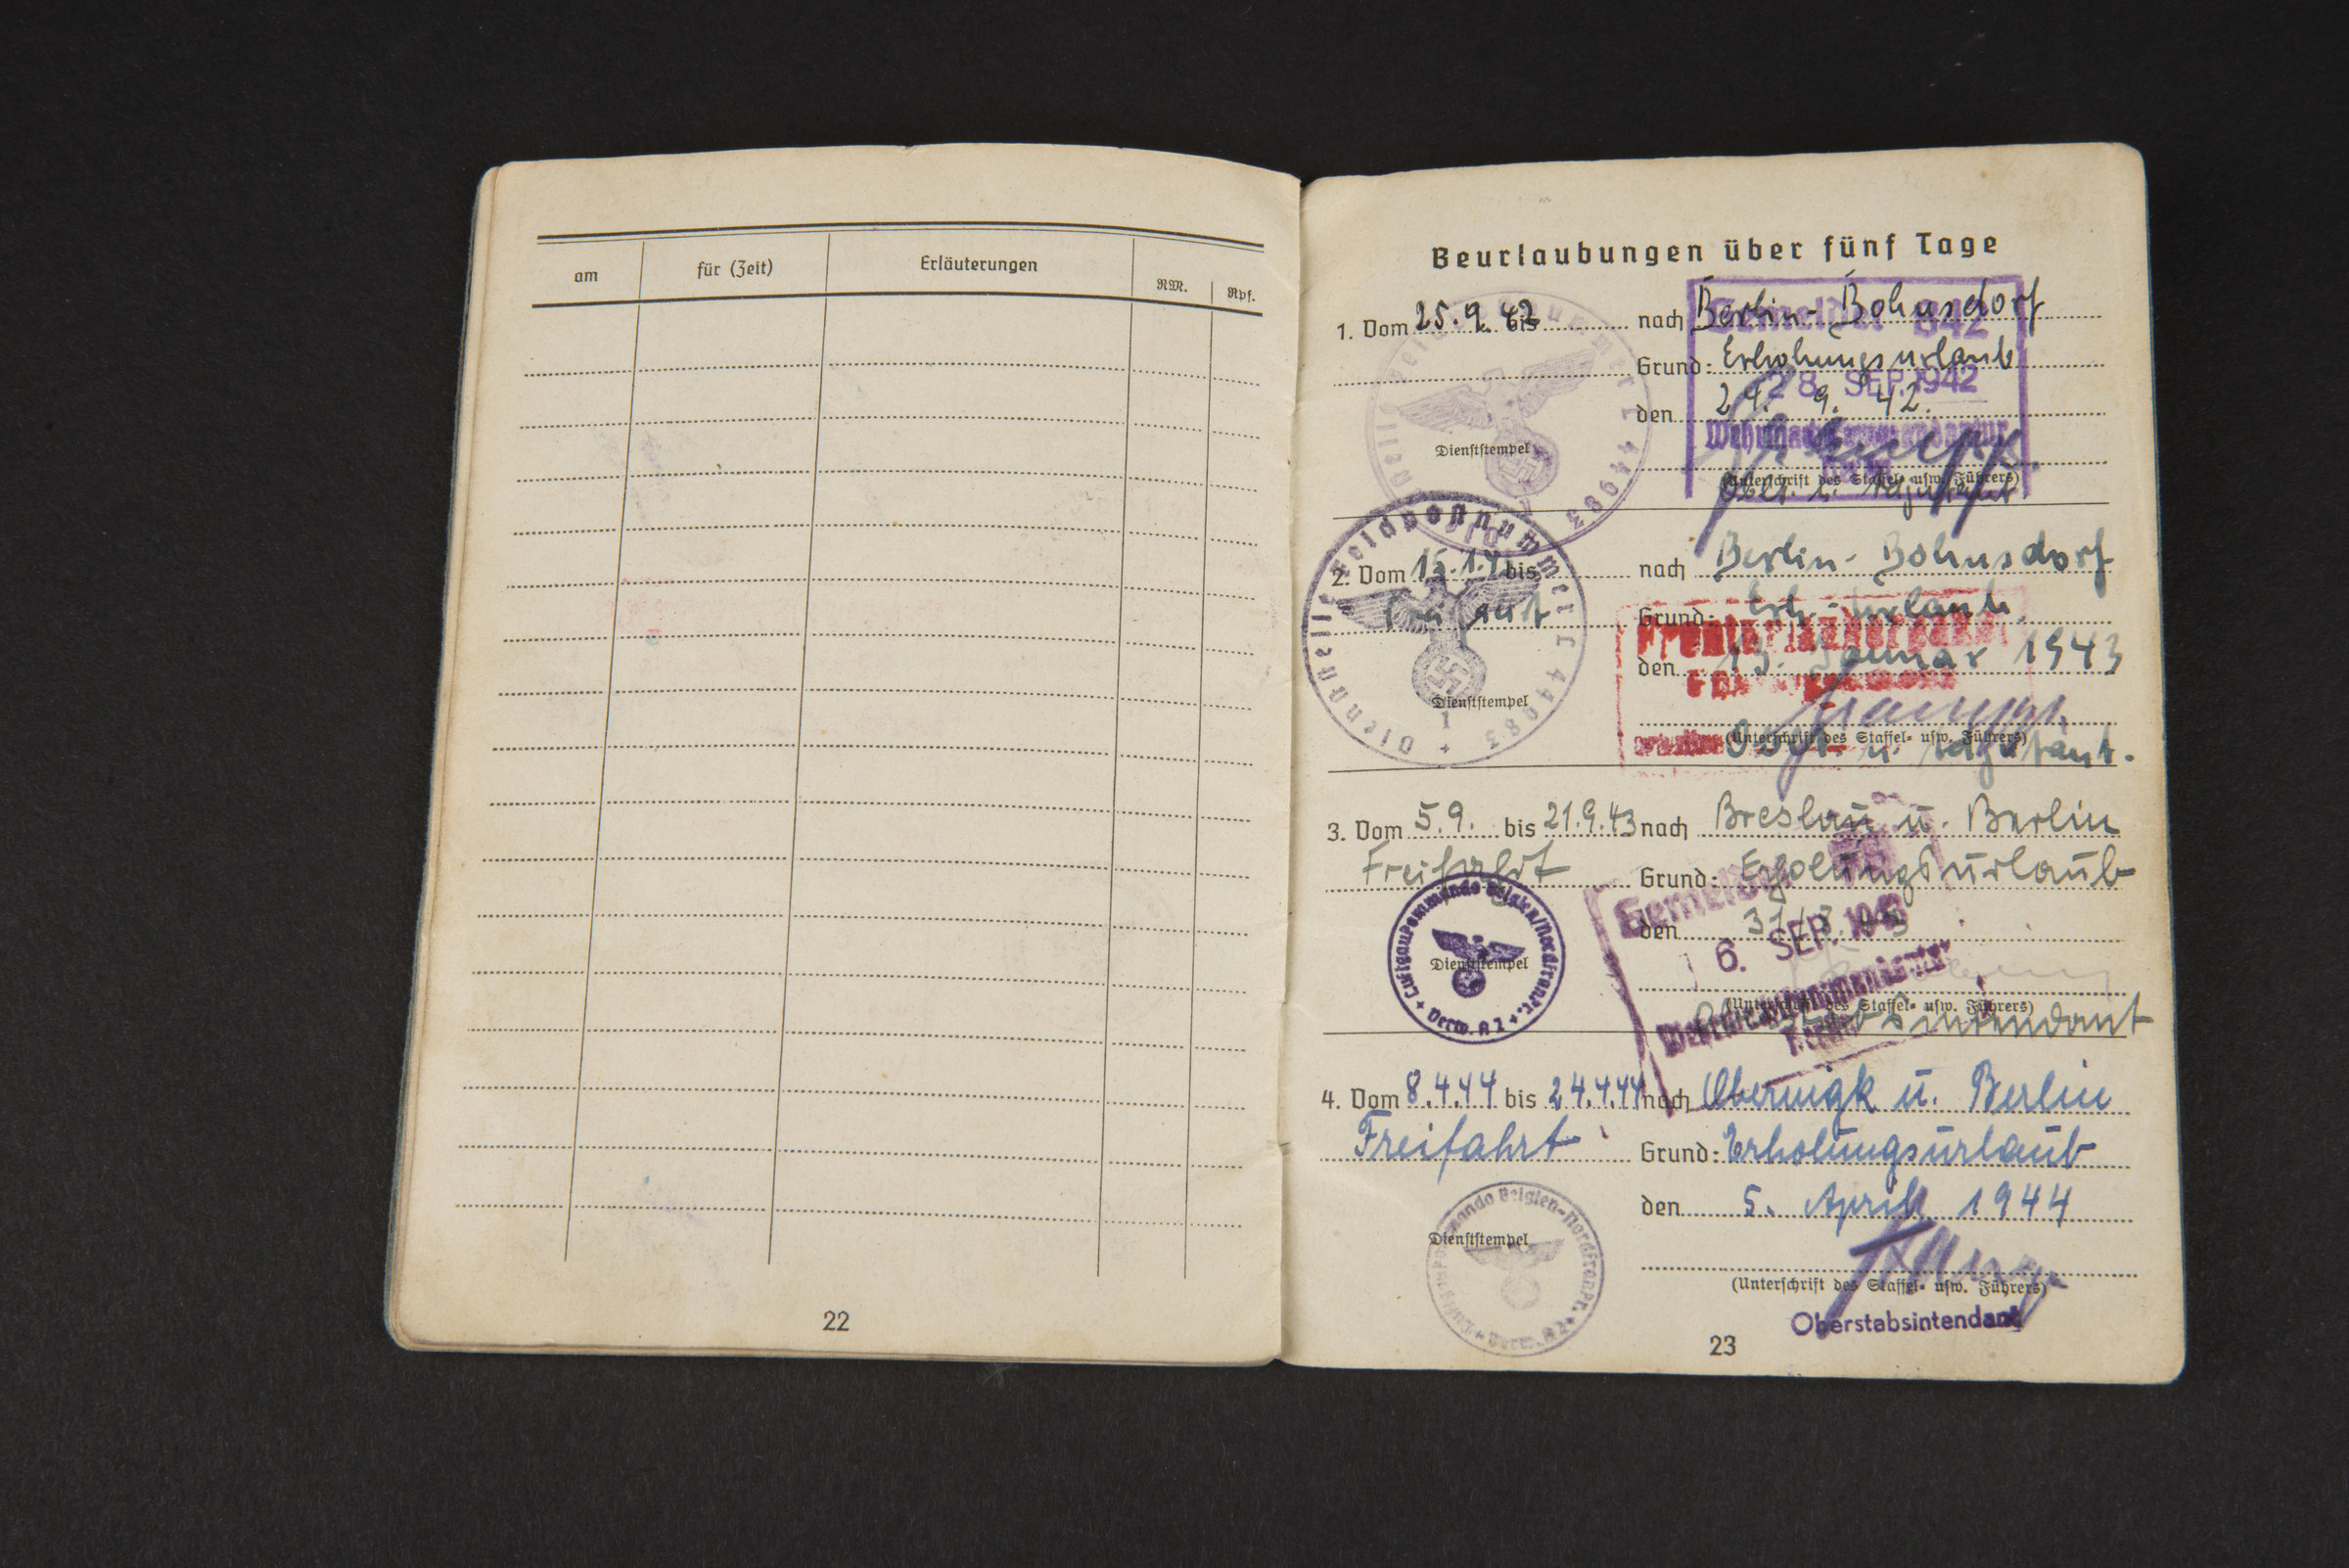 am für (Zeit) Erläuterungen RM. Rpf.
22
Beurlaubungen über fünf Tage
1. Vom 25.9.42 bis nach Berlin-Bohnsdorf
Grund: Erholungsurlaub
28. SEP. 1942
den 24. 9. 42.
Wehrmachtkommandantur
Dienststempel
(Unterschrift des Staffel- usw. Führers)
Oblt. u. Adjutant
Dienststelle Feldpostnummer L 44983
2. Vom 15.1.43 bis nach Berlin-Bohnsdorf
Grund: Erh.-Urlaub
den 13. Januar 1943
Dienststempel
(Unterschrift des Staffel- usw. Führers)
u. Adjutant.
Dienststelle Feldpostnummer L 44983
1
3. Vom 5.9. bis 21.9.43 nach Breslau u. Berlin
Freifahrt Grund: Erholungsurlaub
Gemeldet
den 31.8.43
6. SEP. 1943
Dienststempel
Wehrmachtkommandantur
Berlin
(Unterschrift des Staffel- usw. Führers)
Luftgaukommando Belgien/Nordfrankr. + Verw. A 2 +
4. Vom 8.4.44 bis 24.4.44 nach Obernigk u. Berlin
Freifahrt Grund: Erholungsurlaub
den 5. April 1944
Dienststempel
(Unterschrift des Staffel- usw. Führers)
Luftgaukommando Belgien-Nordfrankr. + Verw. A 2 +
Oberstabsintendant
23